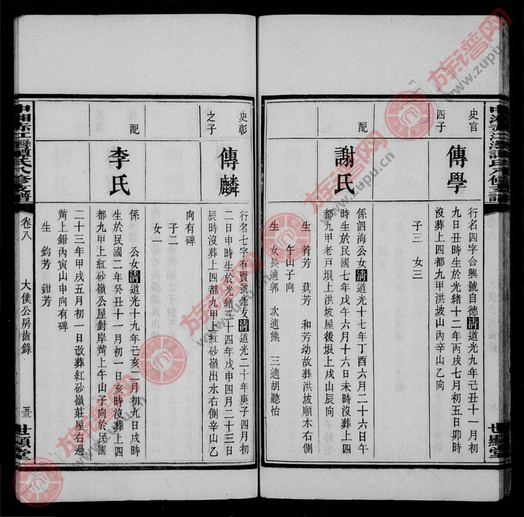 史官
四子
傳學
行名四字合興號自德清道光九年己丑十一月初
九日丑時生於光緒十二年丙戌七月初五日卯時
沒葬上四都九甲洪坡山內辛山乙向
子三 女三
配
謝氏
係泗海公女清道光十七年丁酉六月二十六日午
時生於民國七年戊午六月十六日未時沒葬上四
都九甲老戽塅上洪坡屋後塅上戌山辰向
生 萬芳 和芳幼故葬洪坡順水右側
午山子向
生 女長適郭 次適熊 三適胡聽怡
史彰
之子
傳麟
行名七字有 清道光二十年庚子四月初
二日申時生於光緒三十四年戊申四月二十三日
辰時沒葬上四都九甲上紅砂嶺出水右側辛山乙
向有碑
子二
女一
配
李氏
係 公女清道光十九年己亥二月初九日戌時
生於民國二年癸丑十一月初一日亥時沒葬上四
都九甲上紅砂嶺公屋對岸 上午山子向於民國
二十三年甲戌五月初一日改葬砂嶺莊屋右邊
上鉗內寅山申向有碑
生 鈞芳 鉗芳
卷八
大僕公房齒錄
世顯堂
族谱网
www.zupu.cn